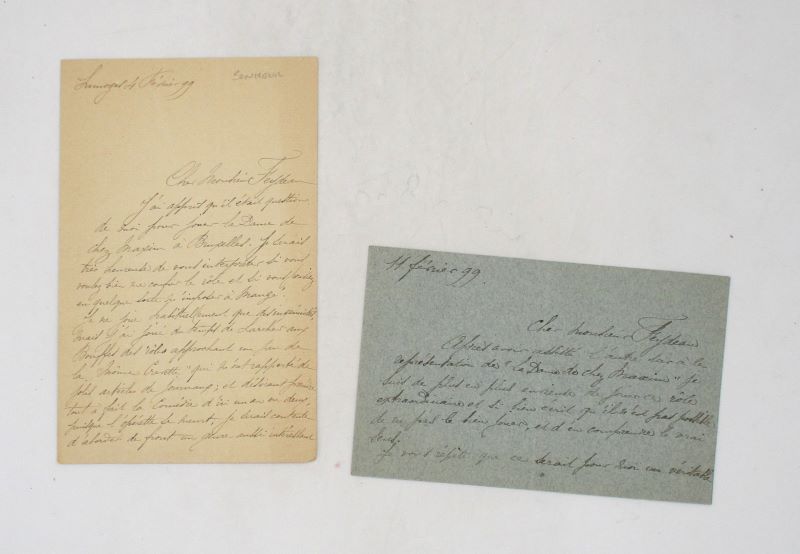 Limoges 4 Février 99
Cher Monsieur Feydeau
J'ai appris qu'il était question
de moi pour jouer la Dame de
chez Maxim à Bruxelles. Je serais
très heureuse de vous interpréter si vous
vouliez bien me confier le rôle et si vous
en quelque sorte m'imposer à Maugé.
Je ne joue habituellement que des
mais j'ai joué du temps de Larcher aux
Bouffes des rôles approchant un peu de
la "môme Crevette" qui m'ont rapporté de
jolis articles de journaux; et désirant
tout à fait la Comédie d'ici un an ou deux,
puisque l'opérette se meurt, je serais contente
d'aborder de front un genre aussi intéressant
11 février 99.
Cher Monsieur Feydeau
Après avoir assisté l'autre soir à la
représentation de "La Dame de chez Maxim" je
suis de plus en plus envieuse de jouer ce rôle
extraordinaire et si bien écrit qu'il n'est pas possible
de ne pas le bien jouer, et d'en comprendre le vrai
sens.
Je vous répète que ce serait pour moi un véritable